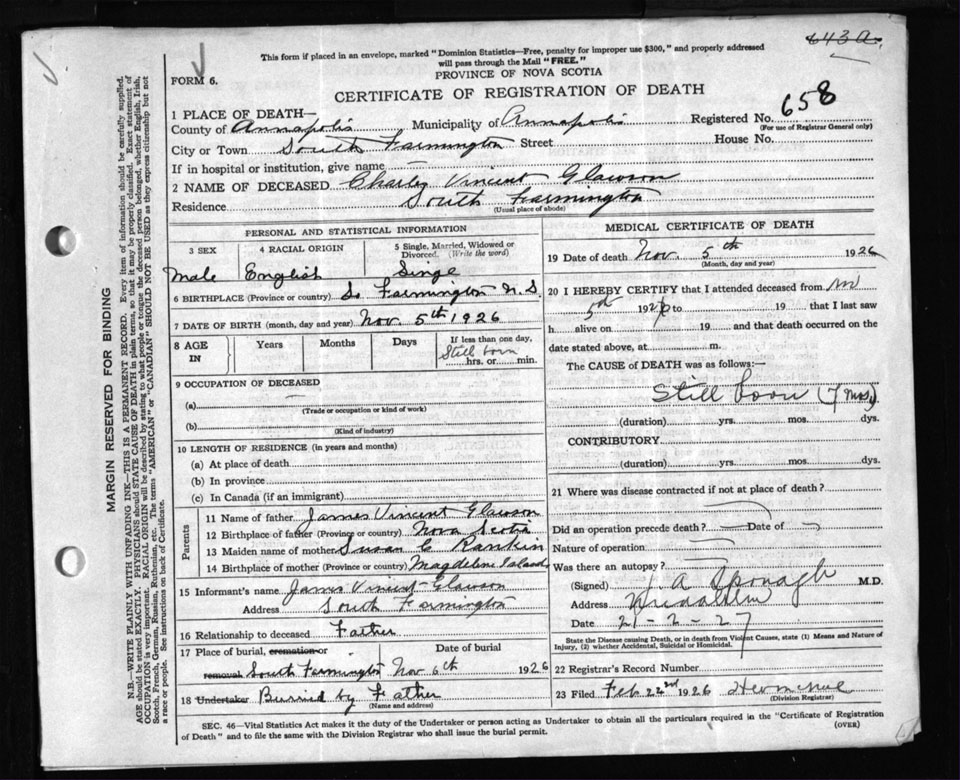 643a.
This form if placed in an envelope, marked "Dominion Statistics—Free, penalty for improper use $300," and properly addressed
will pass through the Mail "FREE."
FORM 6.
PROVINCE OF NOVA SCOTIA
CERTIFICATE OF REGISTRATION OF DEATH
1 PLACE OF DEATH—
County of Annapolis Municipality of Annapolis Registered No. 658
(For use of Registrar General only)
City or Town South Farmington Street House No.
If in hospital or institution, give name —
2 NAME OF DECEASED Charles Vincent Glawson
Residence South Farmington
(Usual place of abode)
PERSONAL AND STATISTICAL INFORMATION
3 SEX
Male
4 RACIAL ORIGIN
English
5 Single, Married, Widowed or
Divorced. (Write the word)
Singe
6 BIRTHPLACE (Province or country) So Farmington N.S.
7 DATE OF BIRTH (month, day and year) Nov. 5th 1926
8 AGE
IN
Years
Months
Days
If less than one day,
Still born
hrs. or min.
9 OCCUPATION OF DECEASED
(a) —
(Trade or occupation or kind of work)
(b)
(Kind of industry)
10 LENGTH OF RESIDENCE (in years and months)
(a) At place of death
(b) In province
(c) In Canada (if an immigrant)
Parents
11 Name of father James Vincent Glawson
12 Birthplace of father (Province or country) Nova Scotia
13 Maiden name of mother Susan C Rankin
14 Birthplace of mother (Province or country) Magdeline Islands
15 Informant's name James Vincent Glawson
Address South Farmington
16 Relationship to deceased Father
17 Place of burial, cremation or
removal South Farmington
Date of burial
Nov 6th 1926
18 Undertaker Buried by Father
(Name and address)
MEDICAL CERTIFICATE OF DEATH
19 Date of death Nov. 5th 1926
(Month, day and year)
20 I HEREBY CERTIFY that I attended deceased from Nov
5th 1926 to 19 that I last saw
h alive on 19 and that death occurred on the
date stated above, at m.
The CAUSE of DEATH was as follows:—
Still born (7 mos)
(duration) yrs. mos. dys.
CONTRIBUTORY
(duration) yrs. mos. dys.
21 Where was disease contracted if not at place of death?
Did an operation precede death? — Date of —
Nature of operation —
Was there an autopsy?
(Signed) A Sponagle M.D.
Address Middleton
Date 21-2-27
State the Disease causing Death, or in death from Violent Causes, state (1) Means and Nature of
Injury, (2) whether Accidental, Suicidal or Homicidal.
22 Registrar's Record Number
23 Filed Feb 22nd 1926
(Division Registrar)
SEC. 46—Vital Statistics Act makes it the duty of the Undertaker or person acting as Undertaker to obtain all the particulars required in the "Certificate of Registration
of Death" and to file the same with the Division Registrar who shall issue the burial permit.
(OVER)
MARGIN RESERVED FOR BINDING
N.B.—WRITE PLAINLY WITH UNFADING INK—THIS IS A PERMANENT RECORD. Every item of information should be carefully supplied.
AGE should be stated EXACTLY. PHYSICIANS should STATE CAUSE OF DEATH in plain terms, so that it may be properly classified. Exact statement of
OCCUPATION is very important. RACIAL ORIGIN will be described by stating to what people or tongue the deceased person belonged, whether English, Irish,
Scotch, French, German, Russian, Ruthenian, etc. The terms "AMERICAN" or "CANADIAN" SHOULD NOT BE USED as they express citizenship but not
a race or people. See instructions on back of Certificate.